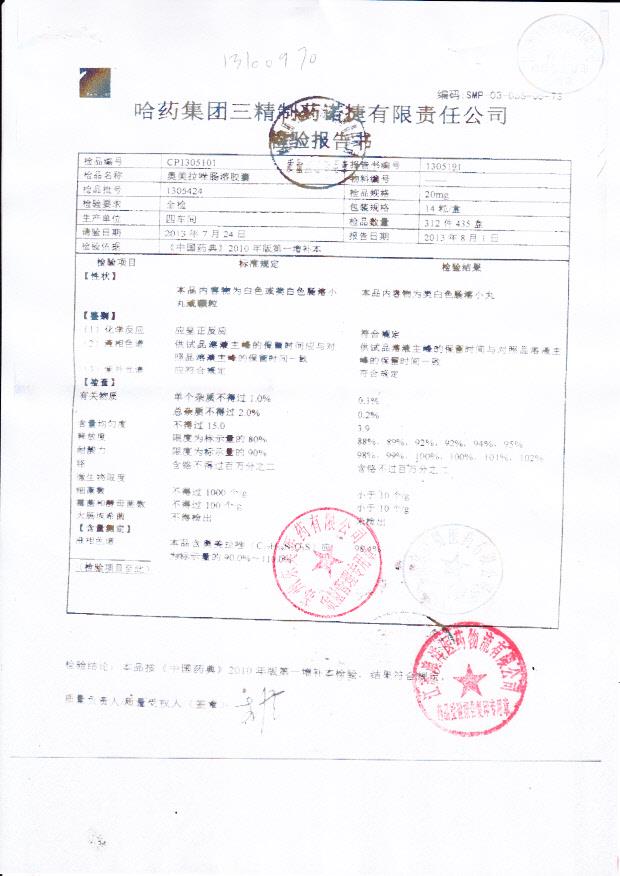 13100970
编码:SMP-03-
哈药集团三精制药诺捷有限责任公司
检验报告书
检品编号 CP1305101 报告书编号 1305191
检品名称 奥美拉唑肠溶胶囊 物料编号 ——
检品批号 1305424 检品规格 20mg
检验要求 全检 包装规格 14粒/盒
生产单位 四车间 检品数量 312件435盒
请验日期 2013年7月24日 报告日期 2013年8月1日
检验依据 《中国药典》2010年版第一增补本
检验项目 标准规定 检验结果
【性状】
本品内容物为白色或类白色肠溶小 本品内容物为类白色肠溶小丸
丸或颗粒
【鉴别】
(1)化学反应 应呈正反应 符合规定
(2)液相色谱 供试品溶液主峰的保留时间应与对 供试品溶液主峰的保留时间与对照品溶液主
照品溶液主峰的保留时间一致 峰的保留时间一致
应符合规定 符合规定
【检查】
有关物质 单个杂质不得过1.0% 0.1%
总杂质不得过2.0% 0.2%
含量均匀度 不得过15.0 3.9
释放度 限度为标示量的80% 88%、89%、92%、92%、94%、95%
耐酸力 限度为标示量的90% 98%、99%、100%、100%、101%、102%
铬 含铬不得过百万分之二 含铬不过百万分之二
微生物限度
细菌数 不得过1000个/g 小于10个/g
霉菌和酵母菌数 不得过100个/g 小于10个/g
大肠埃希菌 不得检出 未检出
【含量测定】
液相色谱 本品含奥美拉唑 应
为标示量的90.0%～110.0%
(检验项目至此)
检验结论：本品按《中国药典》2010年版第一增补本检验，结果符合规定.
质量负责人/质量受权人（签章）
医药有限公司
医药物流有限公司